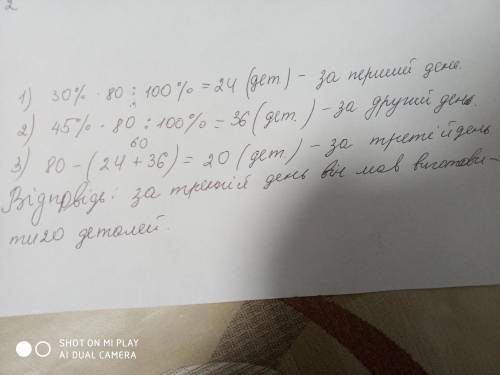 2
1) 30% · 80 : 100% = 24 (дет.) - за перший день.
2) 45% · 80 : 100% = 36 (дет.) - за другий день.
60
3) 80 - (24 + 36) = 20 (дет.) - за третій день
Відповідь: за третій день він мав виготови-
ти 20 деталей.
SHOT ON MI PLAY
AI DUAL CAMERA